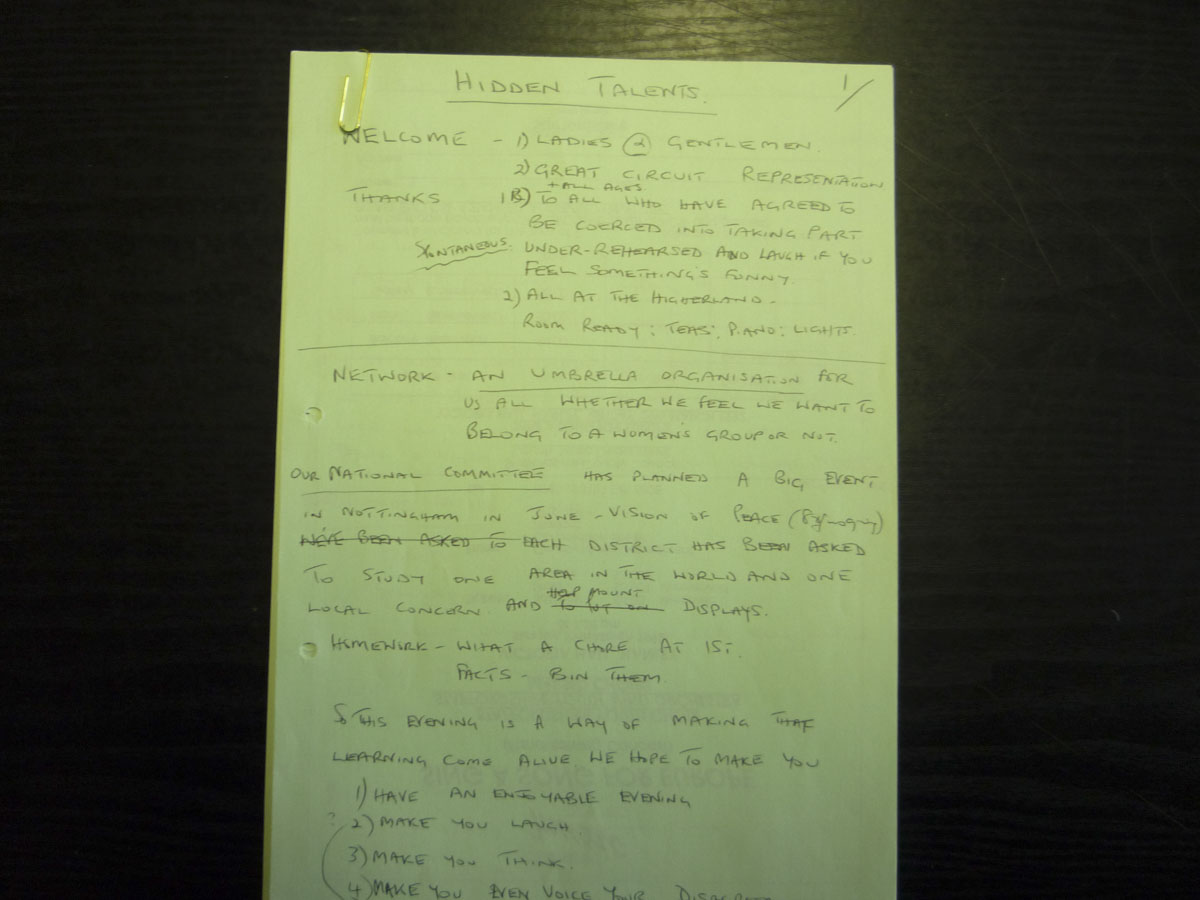 HIDDEN TALENTS. 1/
WELCOME - 1) LADIES & GENTLEMEN.
2) GREAT CIRCUIT REPRESENTATION
+ ALL AGES
THANKS 1) TO ALL WHO HAVE AGREED TO
BE COERCED INTO TAKING PART
SPONTANEOUS. UNDER-REHEARSED AND LAUGH IF YOU
FEEL SOMETHING'S FUNNY.
2) ALL AT THE HIGHERLAND -
ROOM READY: TEAS: PIANO: LIGHTS.
NETWORK - AN UMBRELLA ORGANISATION FOR
US ALL WHETHER WE FEEL WE WANT TO
BELONG TO A WOMEN'S GROUP OR NOT.
OUR NATIONAL COMMITTEE HAS PLANNED A BIG EVENT
IN NOTTINGHAM IN JUNE - VISION OF PEACE
WE'VE BEEN ASKED TO EACH DISTRICT HAS BEEN ASKED
TO STUDY ONE AREA IN THE WORLD AND ONE
HELP MOUNT
LOCAL CONCERN AND TO PUT ON DISPLAYS.
HOMEWORK - WHAT A CHORE AT 1ST.
FACTS - BIN THEM.
SO THIS EVENING IS A WAY OF MAKING THAT
LEARNING COME ALIVE. WE HOPE TO MAKE YOU
SING A SONG FOR EUROPE
1) HAVE AN ENJOYABLE EVENING
? 2) MAKE YOU LAUGH
3) MAKE YOU THINK.
4) MAKE YOU EVEN VOICE YOUR